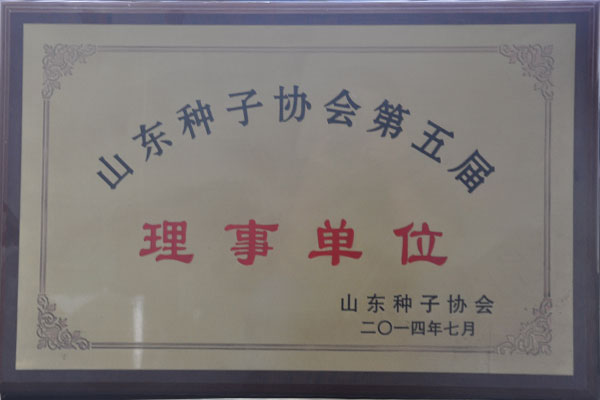 山东种子协会第五届
理事单位
山东种子协会
二〇一四年七月